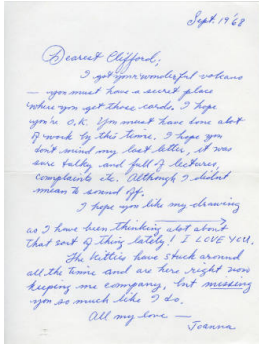 Sept. 19 '68
Dearest Clifford;
I got your wonderful volcano
— you must have a secret place
where you get those cards. I hope
you're O.K. You must have some alot
of work by this time. I hope you
don't mind my last letter, it was
sure talky and full of lectures,
complaints etc. Although I didn't
mean to sound off.
I hope you like my drawing
as I have been thinking alot about
that sort of thing lately! I LOVE YOU.
The Kitties have stuck around
all the time and are here right now
keeping me company, but missing
you so much like I do.
All my love —
Joanna